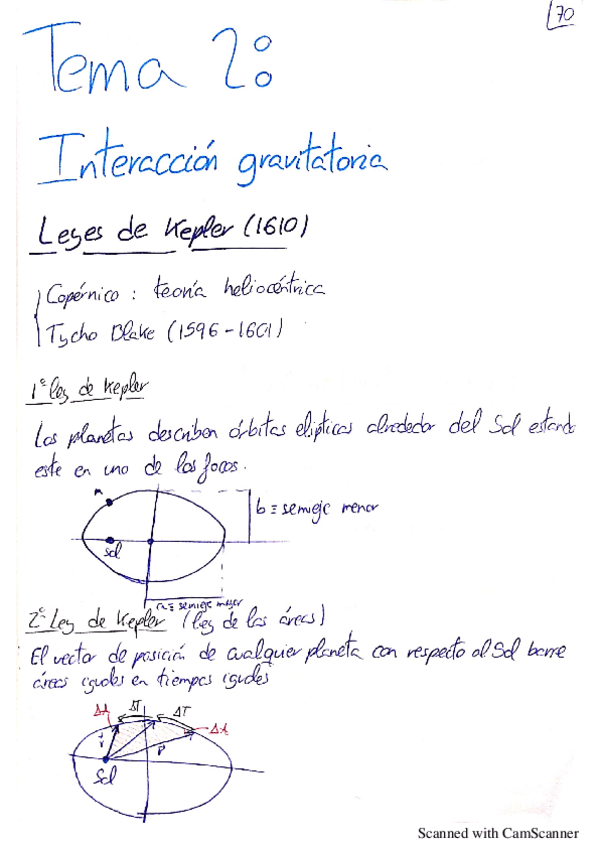 70
Tema 2:
Interacción gravitatoria
Leyes de Kepler (1610)
Copérnico : teoría heliocéntrica
Tycho Blake (1596-1601)
1º ley de Kepler
Los planetas describen órbitas elípticas alrededor del Sol estando
este en uno de los focos.
b ≡ semieje menor
Sol
a ≡ semieje mayor
2º Ley de Kepler (ley de las áreas)
El vector de posición de cualquier planeta con respecto al Sol barre
áreas iguales en tiempos iguales
ΔA ΔT ΔT ΔA
r r
Sol
Scanned with CamScanner